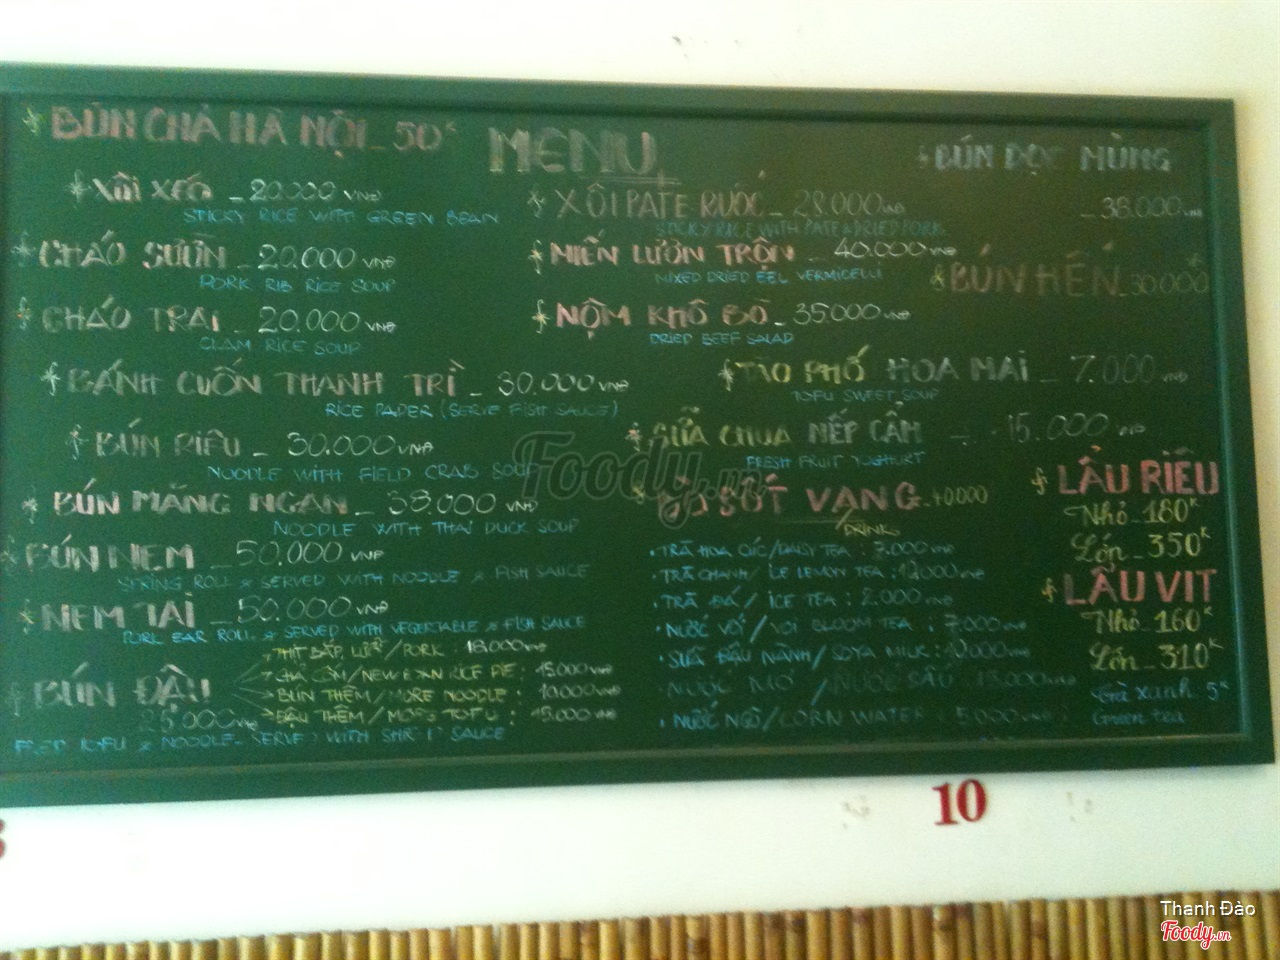 BÚN CHẢ HÀ NỘI _ 50K
MENU
XÔI XÉO _ 20.000 VNĐ
STICKY RICE WITH GREEN BEAN
CHÁO SƯỜN _ 20.000 VNĐ
PORK RIB RICE SOUP
CHÁO TRAI _ 20.000 VNĐ
CLAM RICE SOUP
BÁNH CUỐN THANH TRÌ _ 30.000 VNĐ
RICE PAPER (SERVE FISH SAUCE)
BÚN RIÊU _ 30.000 VNĐ
NOODLE WITH FIELD CRAB SOUP
BÚN MĂNG NGAN _ 38.000 VNĐ
NOODLE WITH THAI DUCK SOUP
BÚN NEM _ 50.000 VNĐ
SPRING ROLL & SERVED WITH NOODLE & FISH SAUCE
NEM TAI _ 50.000 VNĐ
PORK EAR ROLL & SERVED WITH VEGETABLE & FISH SAUCE
BÚN ĐẬU
25.000 VNĐ
THỊT BẮP LUỘC/PORK : 18.000 VNĐ
CHẢ CỐM/NEW RICE PIE : 15.000 VNĐ
BÚN THÊM/MORE NOODLE : 10.000 VNĐ
ĐẬU THÊM/MORE TOFU : 15.000 VNĐ
FRIED TOFU & NOODLE SERVED WITH SHRIMP SAUCE
XÔI PATE RUỐC _ 28.000 VNĐ
STICKY RICE WITH PATE & DRIED PORK
MIẾN LƯƠN TRỘN _ 40.000 VNĐ
MIXED DRIED EEL VERMICELLI
NỘM KHÔ BÒ _ 35.000 VNĐ
DRIED BEEF SALAD
TÀO PHỚ HOA MAI _ 7.000 VNĐ
TOFU SWEET SOUP
SỮA CHUA NẾP CẨM _ 15.000 VNĐ
FRESH FRUIT YOGHURT
BÒ SỐT VANG _ 40.000
DRINKS
TRÀ HOA CÚC/DAISY TEA : 7.000 VNĐ
TRÀ CHANH/ LE LEMON TEA : 12.000 VNĐ
TRÀ ĐÁ/ ICE TEA : 2.000 VNĐ
NƯỚC VỐI/VOI BLOOM TEA : 7.000 VNĐ
SỮA ĐẬU NÀNH/SOYA MILK : 10.000 VNĐ
NƯỚC MƠ /NƯỚC SẤU : 15.000 VNĐ
NƯỚC NGÔ/CORN WATER : 5.000 VNĐ
BÚN DỌC MÙNG
_ 38.000 VNĐ
BÚN HẾN _ 30.000
LẨU RIÊU
Nhỏ _ 180K
Lớn _ 350K
LẨU VỊT
Nhỏ _ 160K
Lớn _ 310K
Trà xanh 5K
Green tea
Foody.vn
10
Thanh Đào
Foody.vn